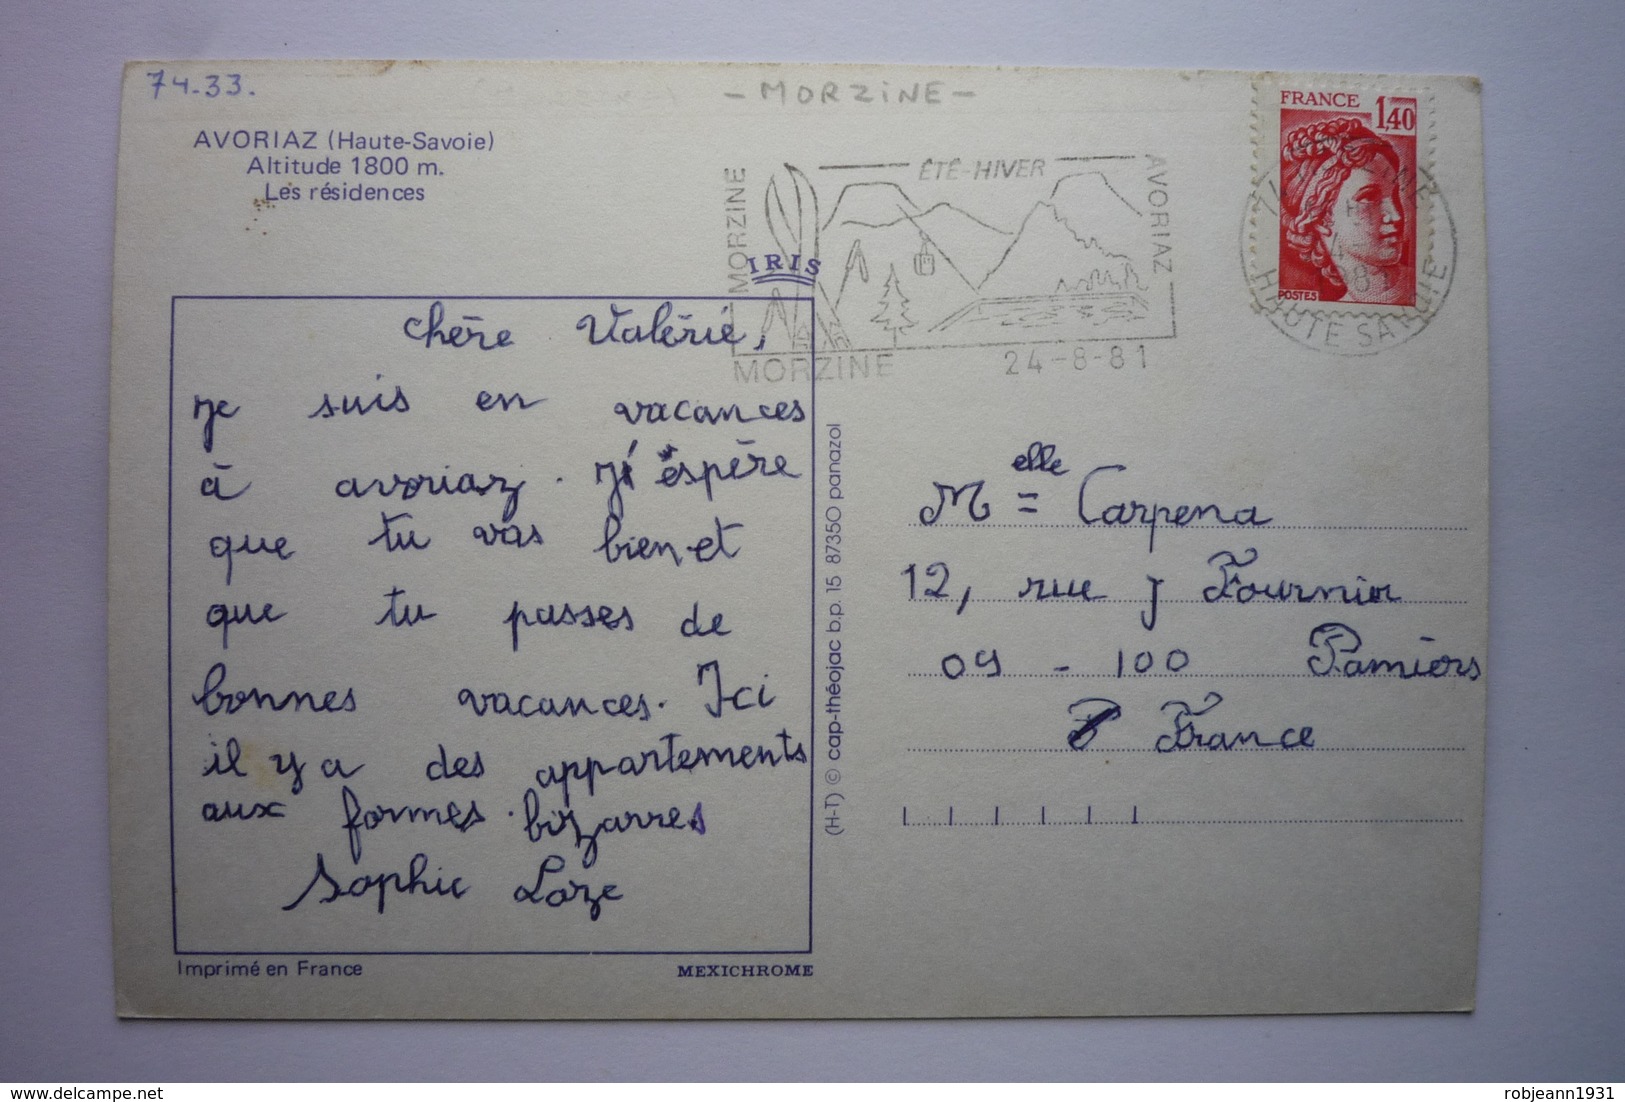 74-33.
- MORZINE -
AVORIAZ (Haute-Savoie)
Altitude 1800 m.
Les résidences
MORZINE
ÉTÉ-HIVER
AVORIAZ
MORZINE
24-8-81
FRANCE
1,40
POSTES
HAUTE SAVOIE
IRIS
chère Valérie,
je suis en vacances
à avoriaz. J'éspère
que tu vas bien et
que tu passes de
bonnes vacances. Ici
il y a des appartements
aux formes bizarres
Sophie Loze
Imprimé en France
MEXICHROME
(H-T) © cap-théojac b.p. 15 87350 panazol
M elle Carpena
12, rue J Fournier
09 - 100 Pamiers
France
delcampe.net
robjeann1931